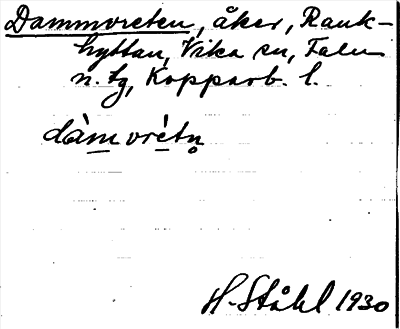 Dammvreten, åker, Rank-
hyttan, Vika sn, Falu
n. tg, Kopparb. l.
dàm vrétn̥
H. Ståhl 1930